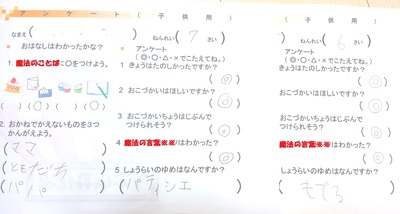 アンケート (子供用)
なまえ( )ねんれい( 7 さい
おはなしはわかったかな?
1. 魔法のことばに○をつけよう。
( )(○)( )(○)
2. おかねでかえないものを3つ
かんがえよう。
(ママ
(ともだち
(パパ
アンケート
(◎・○・△・×でこたえてね。)
1 きょうはたのしかったですか?
(◎)
2 おこづかいはほしいですか?
(○)
3 おこづかいちょうはじぶんで
つけられそう?
(◎)
4 魔法の言葉※※はわかった?
(◎)
5 しょうらいのゆめはなんですか?
(パティシエ
(子供用)
)ねんれい( 6 さい)
アンケート
(◎・○・△・×でこたえてね。)
きょうはたのしかったですか?
(◎)
おこづかいはほしいですか?
(◎)
おこづかいちょうはじぶんで
つけられそう?
(◎)
魔法の言葉※※はわかった?
(◎)
しょうらいのゆめはなんですか?
もでる